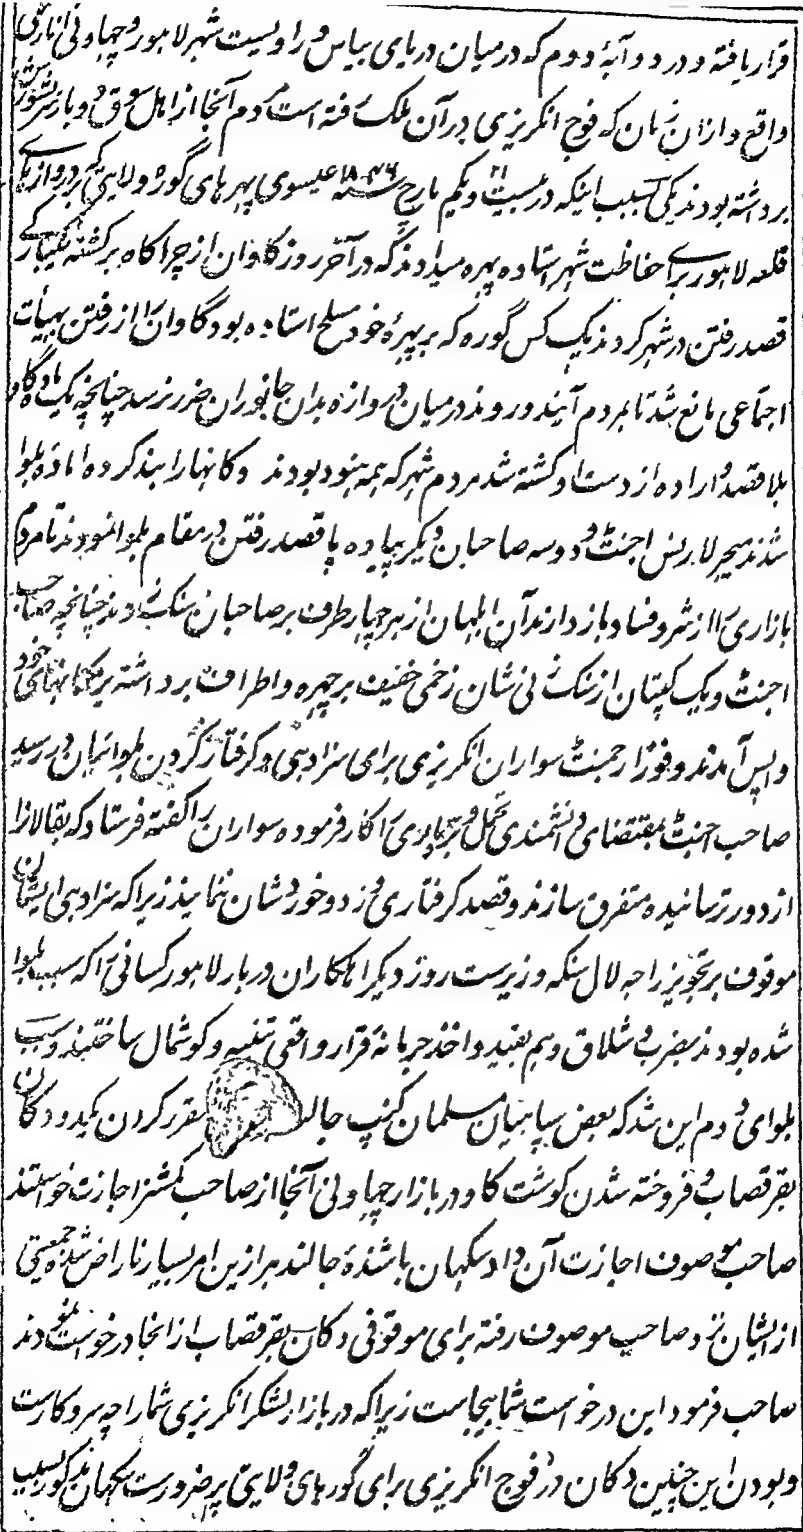 قرار یافته و در دوآبهٔ دوم که در میان دریای بیاس و راویست شهر لاهور و چهاونی انارکلی
واقع و ازان زمان که فوج انگریزی در آن ملک رفته است مردم آنجا از اهل سوق دو بار سر بشورش
برداشته بودند یکی بسبب اینکه در بیست ۲۱ و یکم مارچ سنه ۱۸۴۶ عیسوی پهرهای گوره ولایتی که بر دروازهای
قلعه لاهور برای حفاظت شهر استاده پهره میدادند که در آخر روز گاوان از چراگاه برگشته یکبارگی
قصد رفتن در شهر کردند یک کس گوره که بر پهرهٔ خود مسلح استاده بود گاوان را از رفتن بهیأت
اجتماعی مانع شد تا بمردم آیند و روند در میان دروازه بدان جانوران ضرر نرسد چنانچه یک ماده گاو
بلا قصد و اراده از دست او کشته شد مردم شهر که همه هنود بودند دکانها را بند کرده اماده بلوا
شدند میجر لارنس اجنٹ و دو سه صاحبان دیگر پیاده پا قصد رفتن در مقام بلوا نمودند تا مردم
بازاری را از شر و فساد باز دارند آن ابلهان از هر چهار طرف بر صاحبان سنگ زدند چنانچه صاحب
اجنٹ و یک کپتان از سنگ زنی شان زخمی خفیف بر چهره و اطراف برداشته بر مکانهای خود
واپس آمدند و فوراً رجمنٹ سواران انگریزی برای سزادهی و گرفتار کردن بلوائیان در رسید
صاحب اجنٹ بمقتضای دانشمندی تحمل و بردباری را کار فرموده سواران را گفته فرستاد که بقالانرا
از دور ترسانیده متفرق سازند و قصد گرفتاری و زد و خورد شان ننمایند زیرا که سزادهی ایشان
موقوف بر تجویز راجه لال سنگه وزیرست روز دیگر اهلکاران دربار لاهور کسانی را که سبب بلوا
شده بودند بضرب شلاق و هم بقید و اخذ جرمانه قرار واقعی تنبیه و گوشمال ساختند و سبب
بلوای دوم این شد که بعض سپاهیان مسلمان کنپ جال مقرر کردن یکدو دکان
بقر قصاب و فروخته شدن گوشت گاو در بازار چهاونی آنجا از صاحب کمشنر اجازت خواستند
صاحب موصوف اجازت آن داد سکهان باشندهٔ جالندهر ازین امر بسیار ناراض شده جمعیتی
از ایشان نزد صاحب موصوف رفته برای موقوفی دکان بقر قصاب از انجا درخواست نمودند
صاحب فرمود این درخواست شما بیجاست زیرا که در بازار لشکر انگریزی شما را چه سروکارست
و بودن این چنین دکان در فوج انگریزی برای گورهای ولایتی پر ضرورست سکهان مذکور بسبب